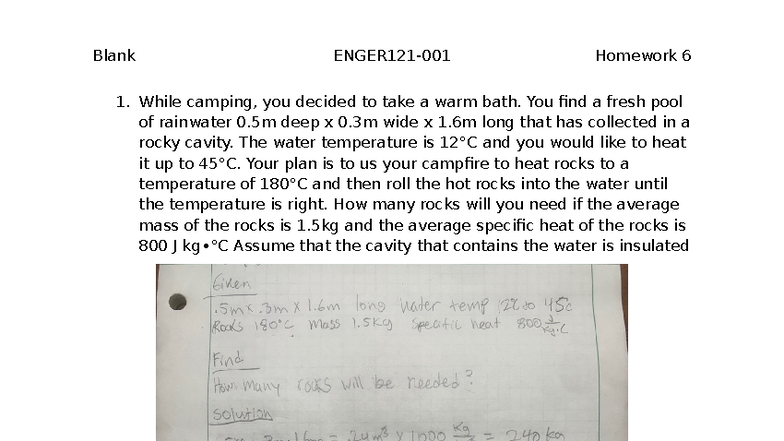 Blank ENGER121-001 Homework 6
1. While camping, you decided to take a warm bath. You find a fresh pool
of rainwater 0.5m deep x 0.3m wide x 1.6m long that has collected in a
rocky cavity. The water temperature is 12°C and you would like to heat
it up to 45°C. Your plan is to us your campfire to heat rocks to a
temperature of 180°C and then roll the hot rocks into the water until
the temperature is right. How many rocks will you need if the average
mass of the rocks is 1.5kg and the average specific heat of the rocks is
800 J kg•°C Assume that the cavity that contains the water is insulated
Given
.5m x .3m x 1.6m long water temp 12C to 45C
Rocks 180°C Mass 1.5Kg Specific heat 800 J/Kg·C
Find
How many rocks will be needed?
Solution
= .24m³ x 1000 Kg = 240 kg